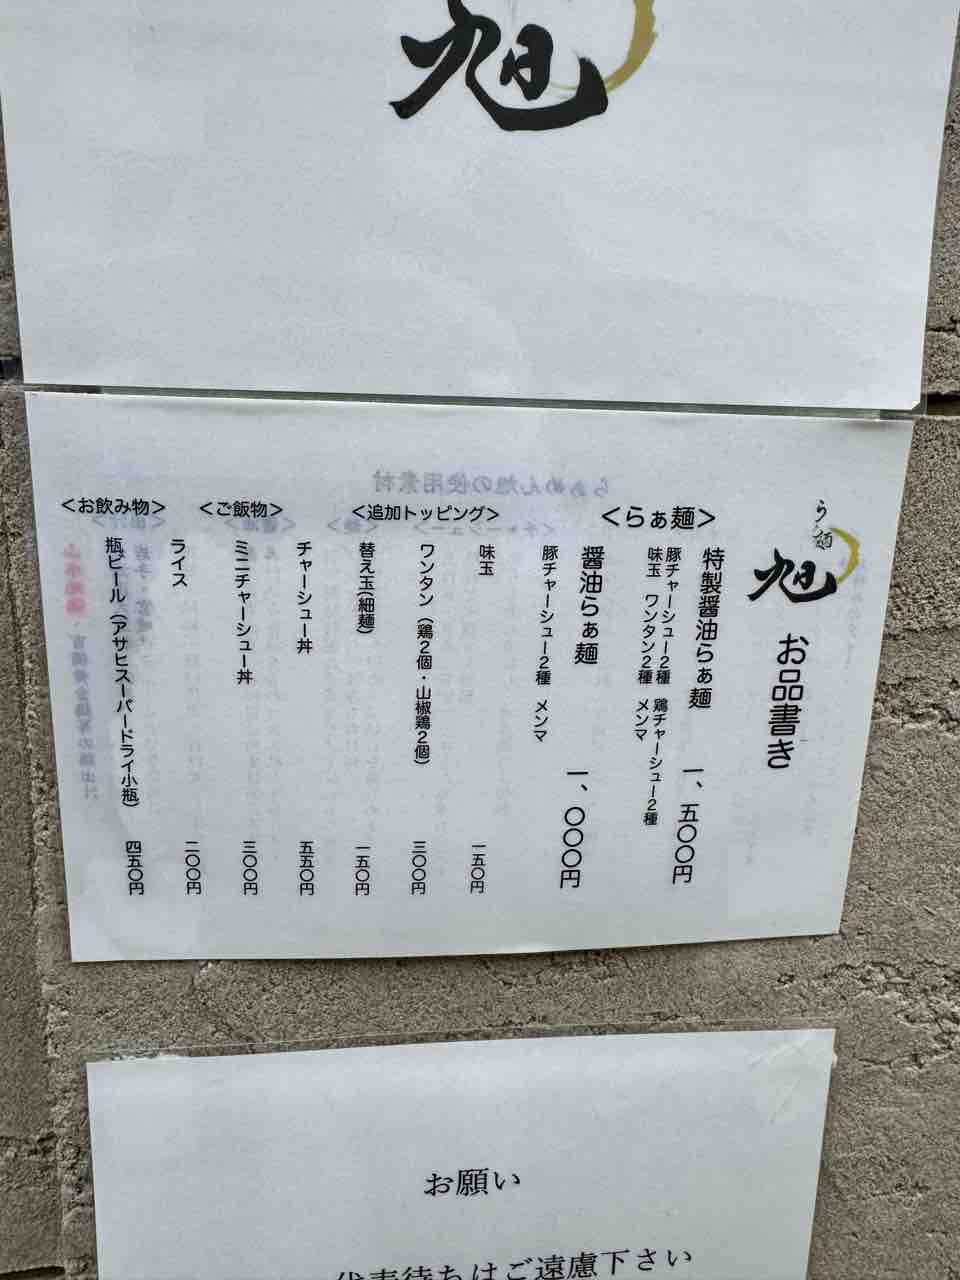 旭
ら麺
旭
お品書き
＜らぁ麺＞
特製醤油らぁ麺 一、五〇〇円
豚チャーシュー2種 鶏チャーシュー2種
味玉 ワンタン2種 メンマ
醤油らぁ麺 一、〇〇〇円
豚チャーシュー2種 メンマ
＜追加トッピング＞
味玉 一五〇円
ワンタン（鶏2個・山椒鶏2個） 三〇〇円
替え玉(細麺) 一五〇円
＜ご飯物＞
チャーシュー丼 五五〇円
ミニチャーシュー丼 三〇〇円
ライス 二〇〇円
＜お飲み物＞
瓶ビール（アサヒスーパードライ小瓶） 四五〇円
らぁめん旭の使用素材
お願い
代表待ちはご遠慮下さい